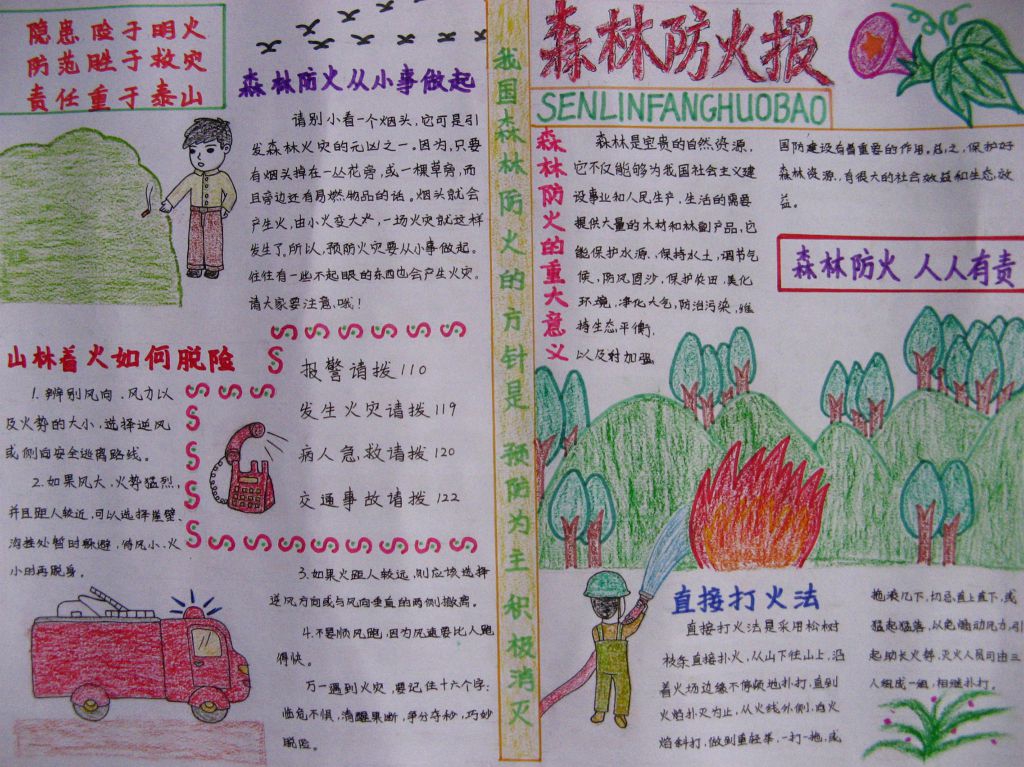 隐患险于明火
防范胜于救灾
责任重于泰山
森林防火从小事做起
请别小看一个烟头,它可是引
发森林火灾的元凶之一。因为,只要
有烟头掉在一丛花旁,或一棵草旁,而
且旁边还有易燃物品的话。烟头就会
产生火,由小火变大火,一场火灾就这样
发生了。所以,预防火灾要从小事做起。
往往有一些不起眼的东西也会产生火灾。
请大家要注意,哦!
山林着火如何脱险
1.辨别风向、风力以
及火势的大小,选择逆风
或侧向安全逃离路线。
2.如果风大、火势猛烈,
并且距人较近,可以选择崖壁、
沟洼处暂时躲避,待风小、火
小时再脱身。
报警请拨110
发生火灾请拨119
病人急,救请拨120
交通事故请拨122
3.如果火距人较远,则应该选择
逆风方向或与风向垂直的两侧撤离。
4.不要顺风跑,因为风速要比人跑
得快。
万一遇到火灾,要记住十六个字:
临危不惧,清醒果断,争分夺秒,巧妙
脱险。
我国森林防火的方针是 预防为主 积极消灭
森林防火报
SENLINFANGHUOBAO
森林防火的重大意义
森林是宝贵的自然资源,
它不仅能够为我国社会主义建
设事业和人民生产、生活的需要
提供大量的木材和林副产品,它
能保护水源、保持水土,调节气
候,防风固沙,保护农田,美化
环境,净化大气,防治污染,维
持生态平衡,
以及对加强
国防建设有着重要的作用。总之,保护好
森林资源,有很大的社会效益和生态效
益。
森林防火 人人有责
直接打火法
直接打火法是采用松树
枝条直接扑火,从山下往山上,沿
着火场边缘不停顿地扑打,直到
火焰扑灭为止,从火线外侧,向火
焰斜打,做到重轻举,一打一拖,或
拖滚几下,切忌直上直下,或
猛起猛落,以免煽动风力,引
起助长火势,灭火人员可由三
人组成一组,相继扑打。